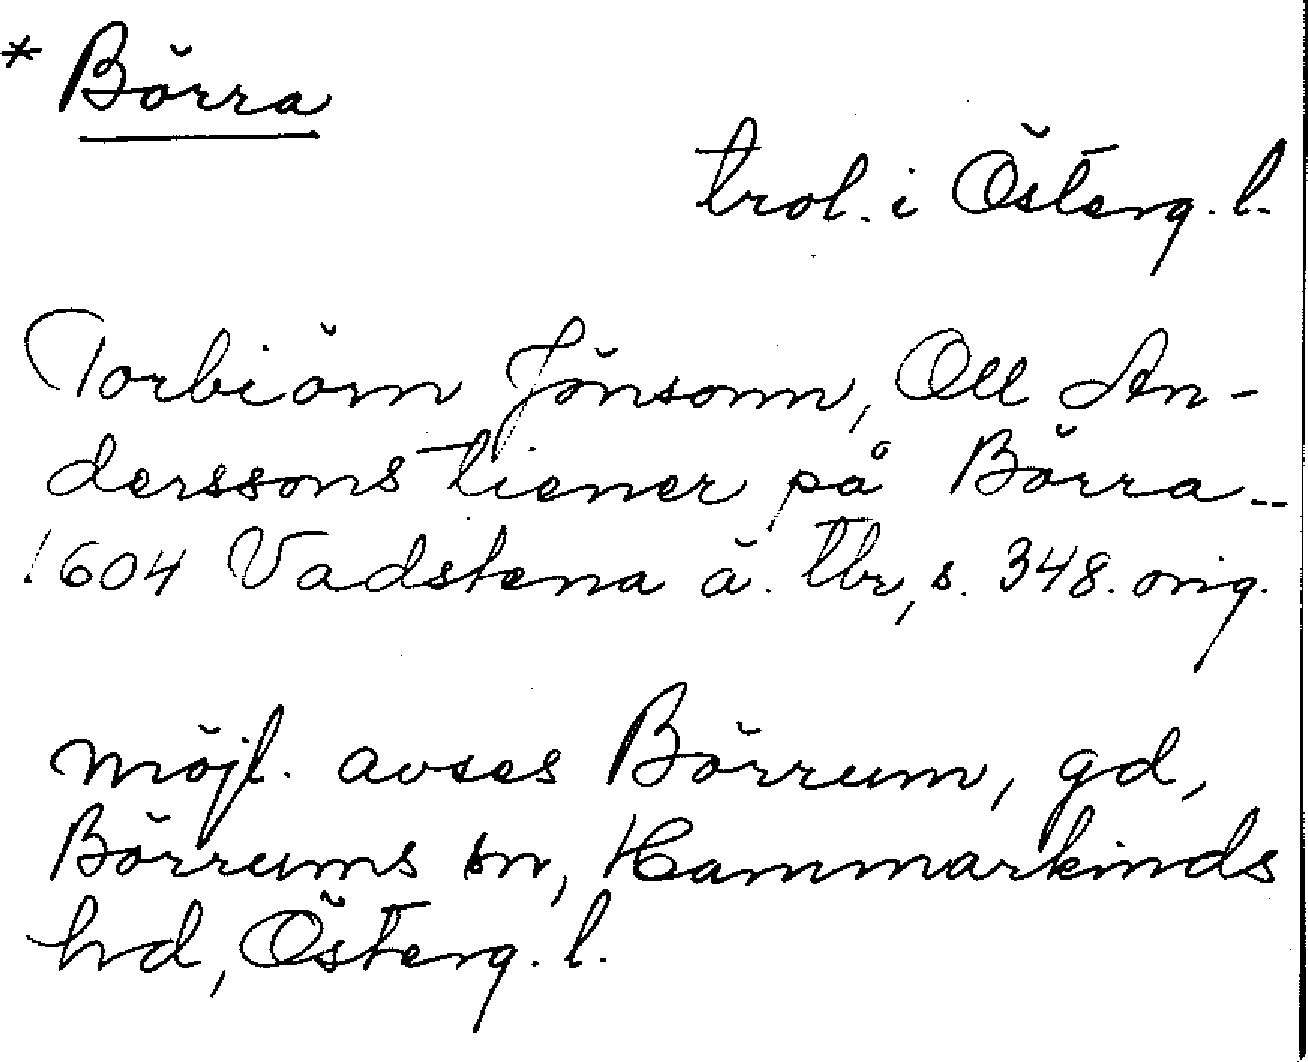 * Börra
trol. i Österg. l.
Torbiörn Jönsonn, Oll An-
derssons tiener på Börra--
1604 Vadstena ä. tbr, s. 348. orig.
möjl. avses Börrum, gd,
Börrums sn, Hammarkinds
hd, Österg. l.